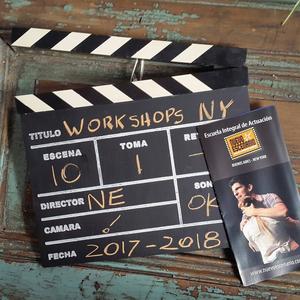 TITULO WORKSHOPS NY
ESCENA TOMA
10 1
DIRECTOR NE
SON
OK
CAMARA !
FECHA 2017-2018
Escuela Integral de Actuación
NUEVO ESCENARIO
BUENOS AIRES - NEW YORK
www.nuevoescenario.co